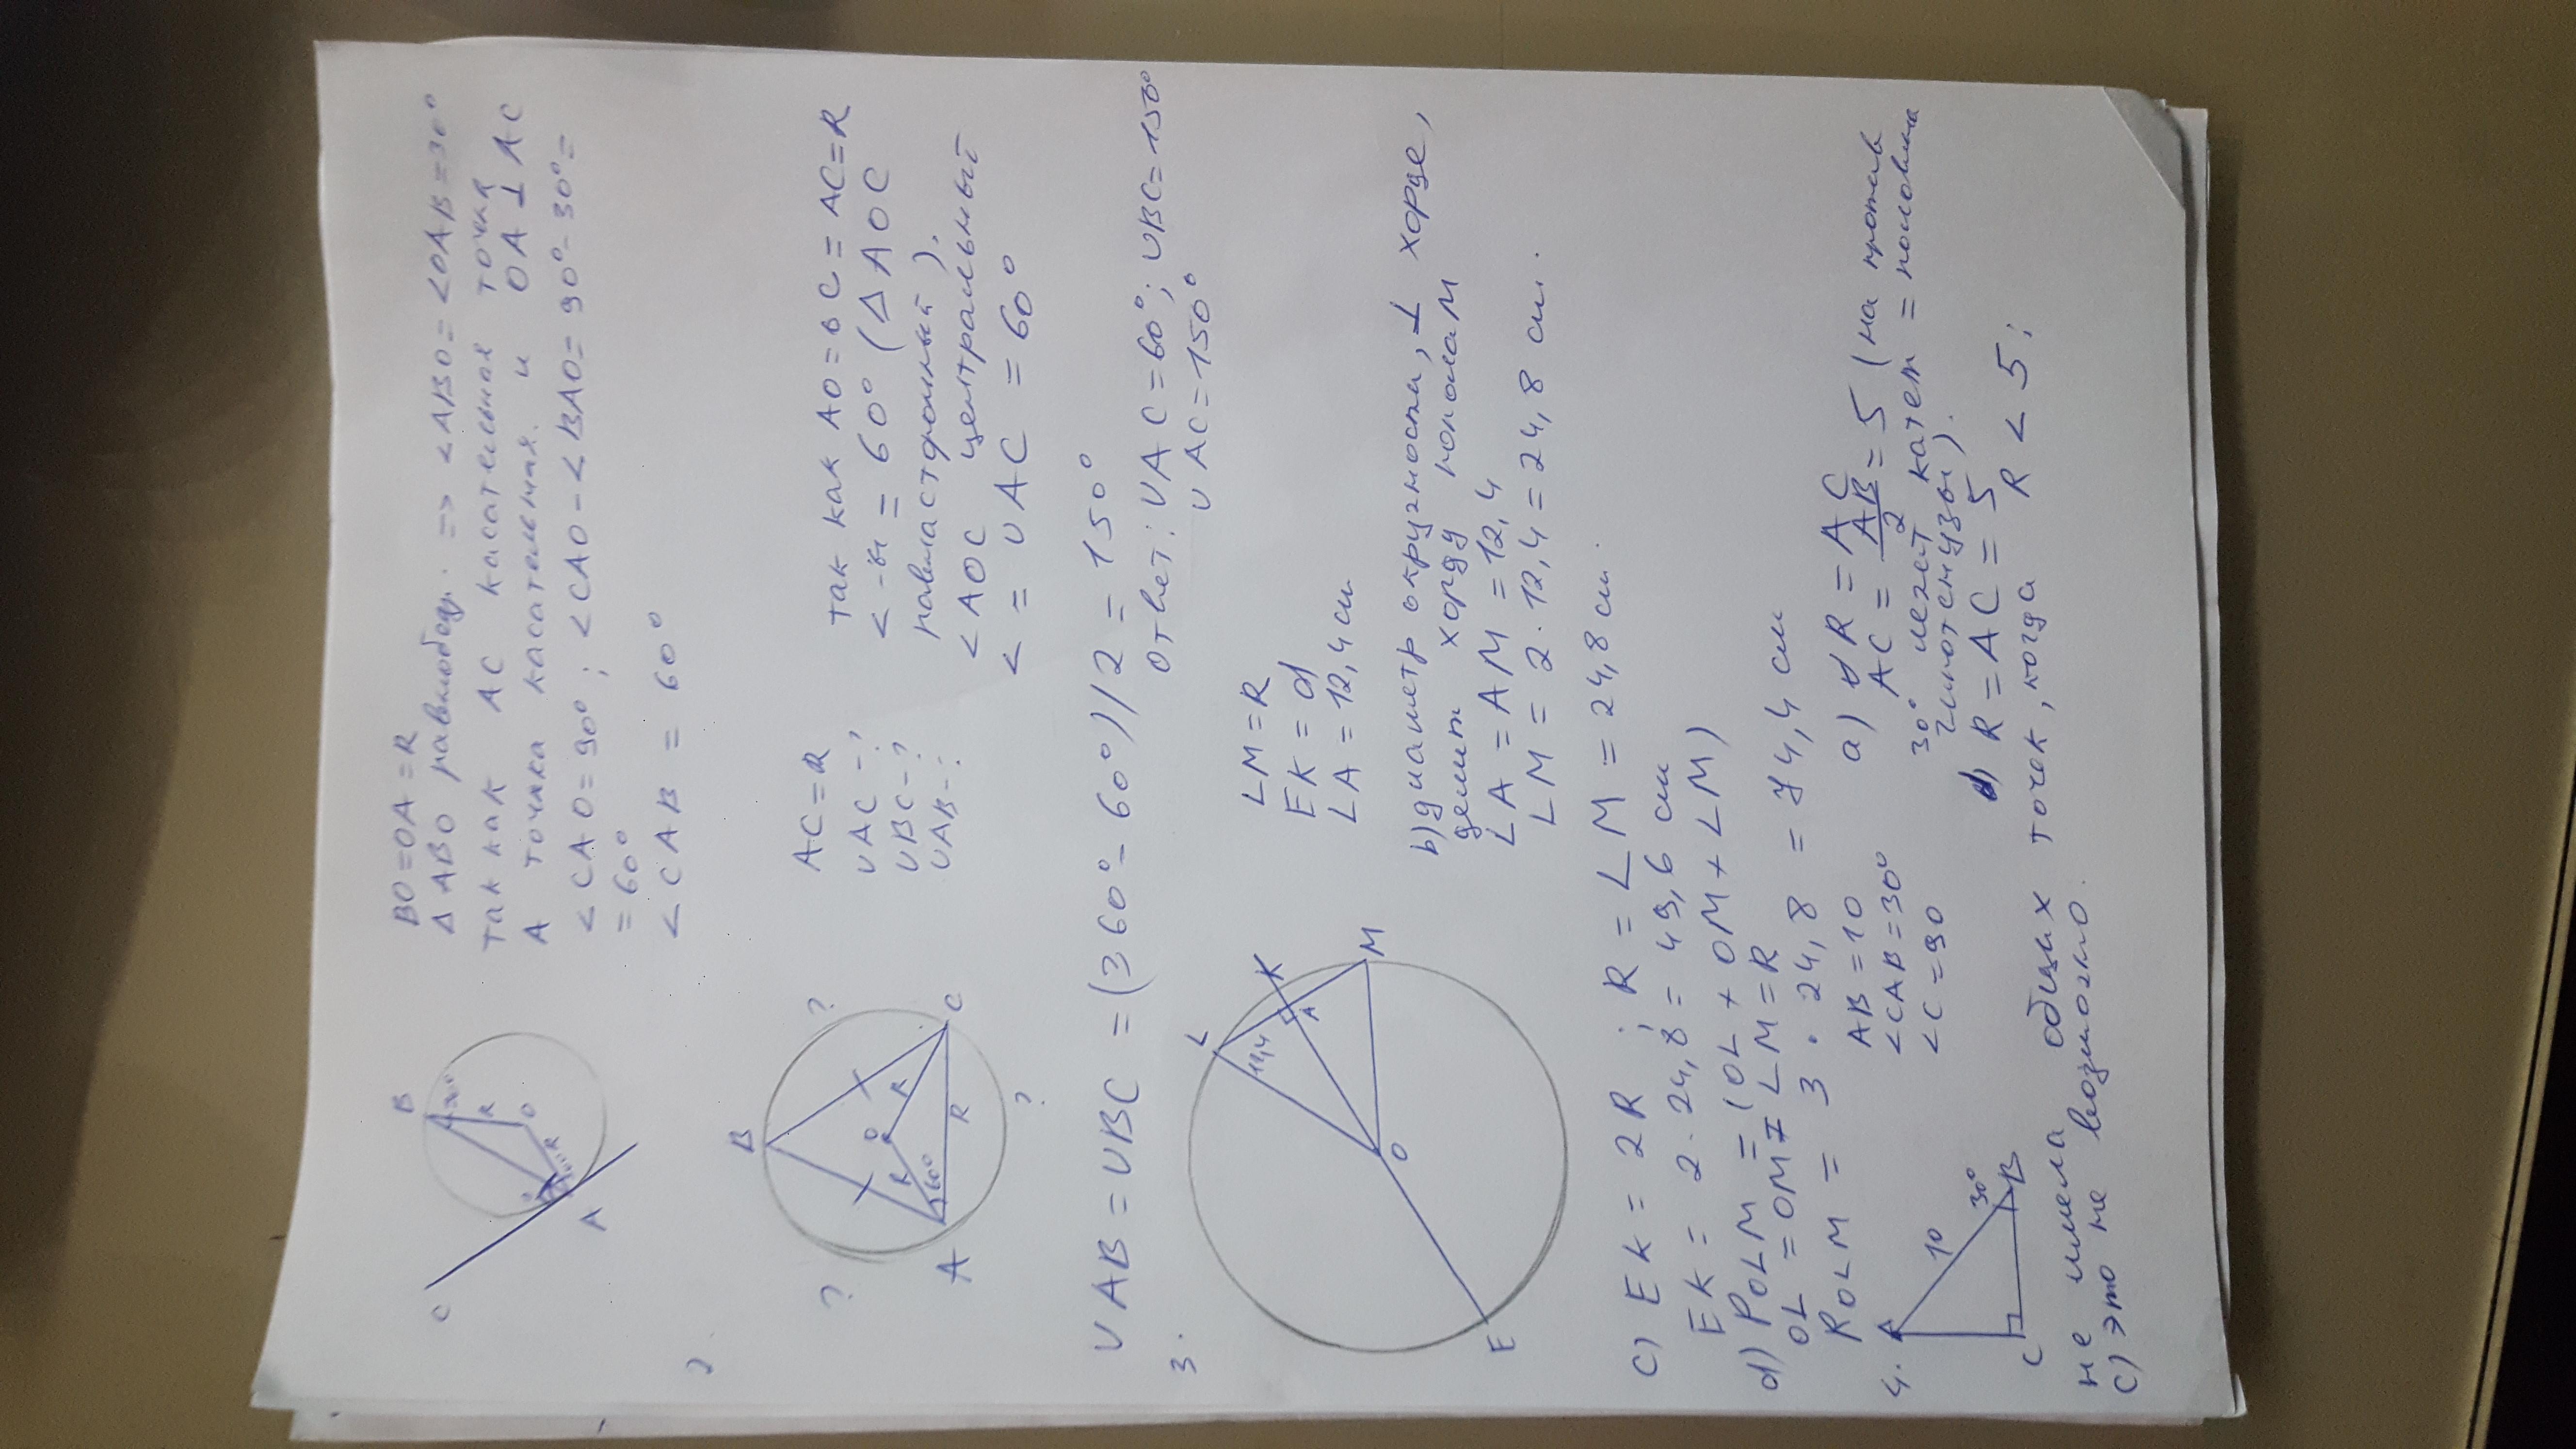 BO=OA=R
∆ ABO равнобедр. => <ABO = <OAB=30°
Так как AC касательная точка
A точка касательная. и OA ⊥ AC
<CAO=90°; <CAO-<BAO=90°-30°=
=60°
<CAB = 60°
C
B
30°
R
O
R
A
B
?
?
?
O
R
R
R
60°
A
C
AC=R
∪AC-?
∪BC-?
∪AB-?
так как AO=OC=AC=R
< = 60° (∆ AOC
равносторонный).
<AOC центральный
< = ∪AC = 60°
∪AB=∪BC = (360°-60°)/2 = 150°
Ответ: ∪AC=60°; ∪BC=150°
∪AC=150°
3.
L
K
A
M
O
E
LM=R
EK=d
LA=12,4см
b) диаметр окружности, ⊥ хорде,
делит хорду пополам
LA=AM=12,4
LM=2·12,4=24,8 см.
c) EK=2R; R=LM=24,8см.
EK=2·24,8=49,6 см
d) POLM=(OL+OM+LM)
OL=OM=LM=R
POLM=3·24,8=74,4 см
4.
A
10
30°
B
C
AB=10
<CAB=30°
<C=90
a) R=AC
AC=AB/2=5 (на против
30° лежет катет = половина
гипотенузы).
R=AC=5
не имела общих точек, когда R<5;
c) это не возможно.